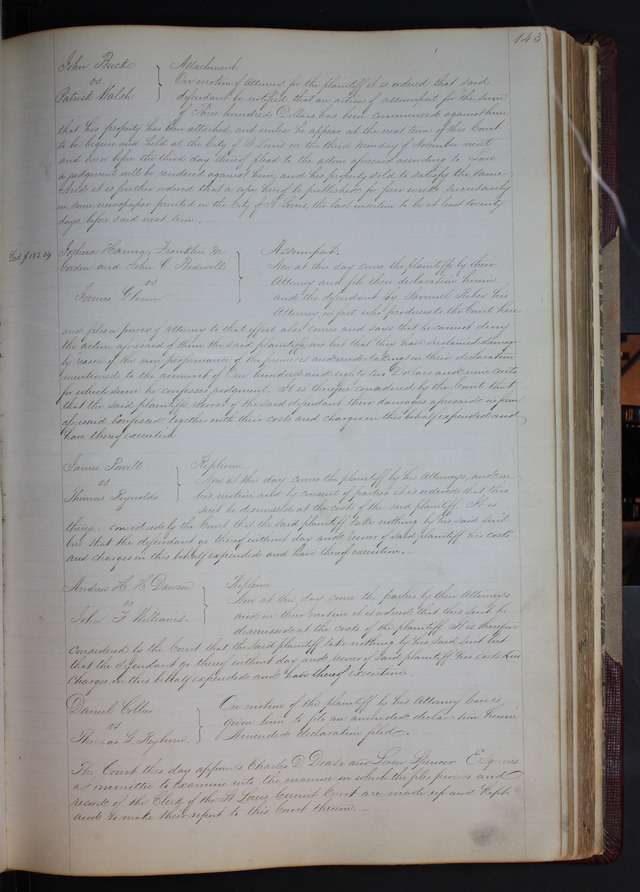 143
John Beck
vs
Patrick Walsh
Attachment
On motion of Attorney for the plaintiff it is ordered that said
defendant be notified that an action of assumpsit for the sum
of Three hundred Dollars has been commenced against him
that his property has been attached and unless he appear at the next term of this Court
to be begun and held at the City of St Louis on the third Monday of November next
and on or before the third day thereof plead to the action aforesaid according to Law
a judgment will be rendered against him, and his property sold to satisfy the same
And it is further ordered that a copy hereof be published for four weeks successively
in some newspaper printed in the City of St Louis, the last insertion to be at least twenty
days before said next term.
Joshua Haring, Franklin M
Corden and John C Bidwell
vs
James Glenn
Assumpsit.
Now at this day come the plaintiffs by their
Attorney and file their declaration herein
and the defendant by Samuel his
Attorney in fact who produces to the Court here
and files a power of attorney to that effect also comes and says that he cannot deny
the action aforesaid of them the said plaintiffs nor but that they have sustained damage
by reason of the non performance of the promises and undertakings in their declaration
mentioned to the amount of One hundred and eighty two Dollars and nine cents
for which sum he confesses judgment. It is therefore considered by the Court that
that the said plaintiffs recover of the said defendant their damages aforesaid in form
aforesaid confessed together with their costs and charges in this behalf expended and
have thereof execution.
James Powell
vs
Thomas Reynolds
Replevin.
Now at this day comes the plaintiff by his Attorneys, and on
his motion and by consent of parties it is ordered that this
suit be dismissed at the costs of the said plaintiff. It is
therefore considered by the Court that the said plaintiff take nothing by his said suit
but that the defendant go thereof without day and recover of said plaintiff his costs
and charges in this behalf expended and have thereof execution.
Andrew H. H. Dawson
vs
John F Williams.
Replevin
Now at this day come the parties by their Attorneys
and on their motion it is ordered that this suit be
dismissed at the costs of the plaintiff. It is therefore
considered by the Court that the said plaintiff take nothing by his said suit but
that the defendant go thereof without day and recover of said plaintiff his costs &
charges in this behalf expended and have thereof execution.
Daniel Collier
vs
Thomas G
On motion of the plaintiff by his Attorney leave is
given him to file an amended declaration herein
Amended declaration filed.
The Court this day appoints Charles D Drake and Lorin Spencer Esquires
a committee to examine into the manner in which the files process and
records of the Clerk of the St Louis Circuit Court are made up and kept
and to make their report to this Court thereon.